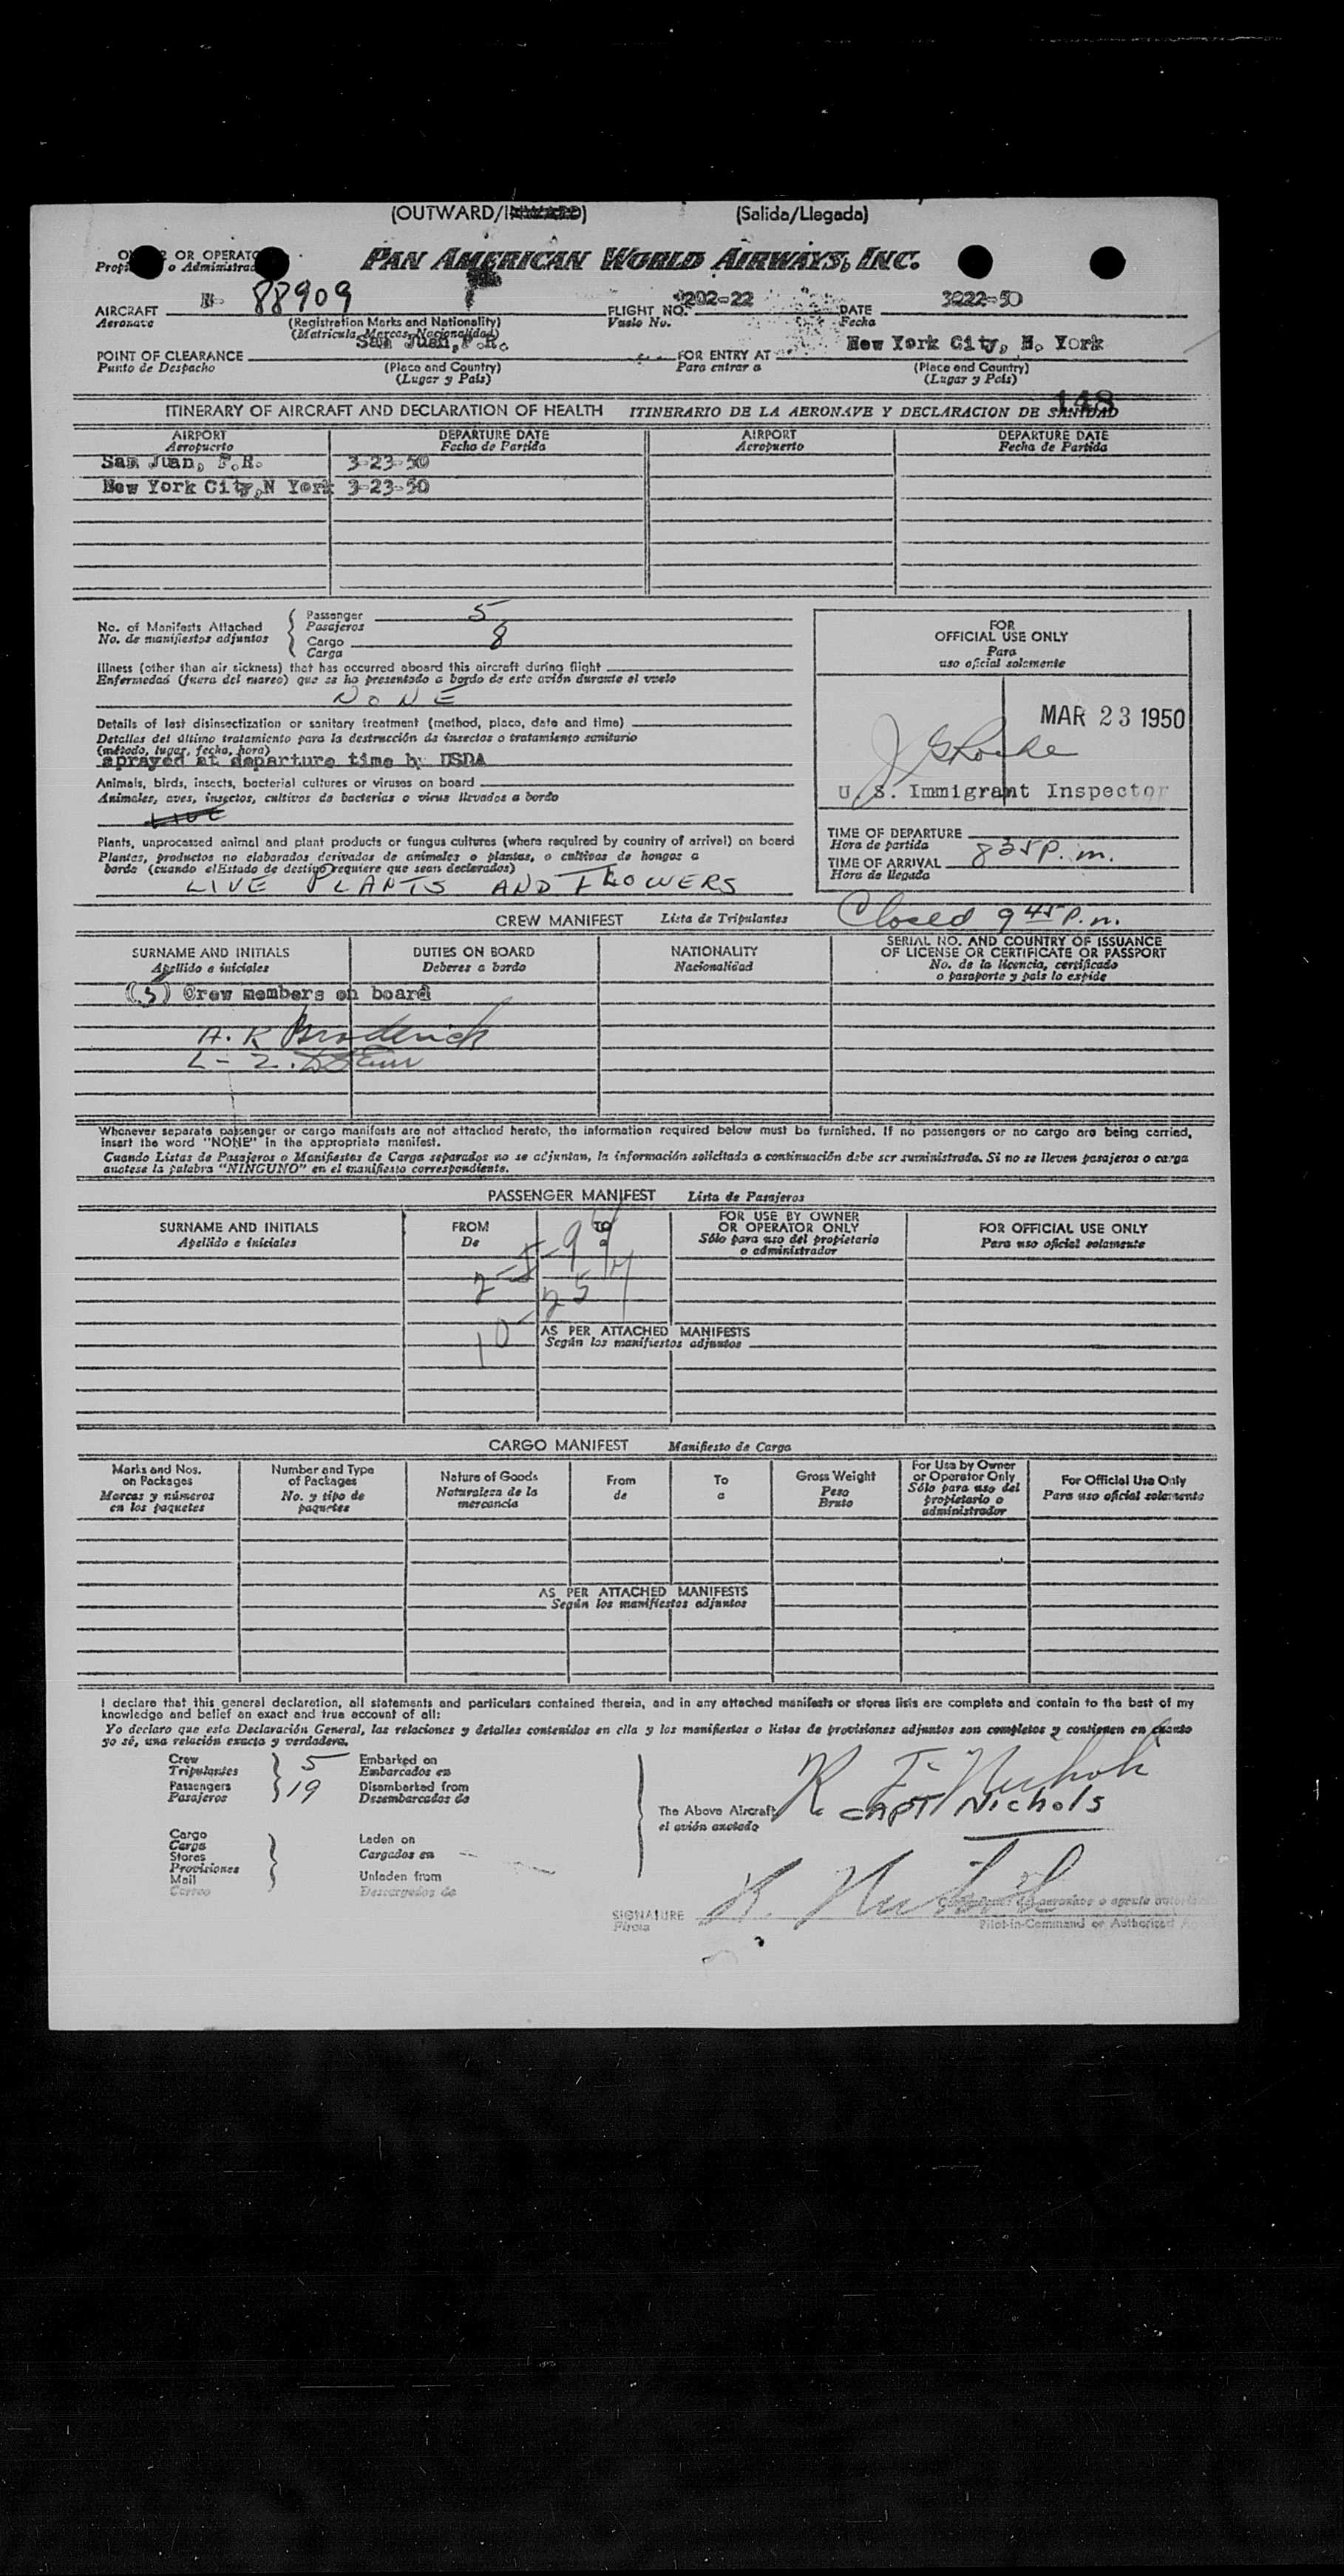 (OUTWARD/INWARD) (Salida/Llegada)
OR OPERATO
o Administrad
PAN AMERICAN WORLD AIRWAYS, INC.
AIRCRAFT N- 88909 FLIGHT NO. 202-22 DATE 3022-50
Aeronave (Registration Marks and Nationality) Vuelo No. Fecha
(Matricula, Marcas, Nacionalidad)
San Juan, P.R. New York City, N. York
POINT OF CLEARANCE FOR ENTRY AT
Punto de Despacho (Place and Country) Para entrar a (Place and Country)
(Lugar y País) (Lugar y País)
148
ITINERARY OF AIRCRAFT AND DECLARATION OF HEALTH ITINERARIO DE LA AERONAVE Y DECLARACION DE SANIDAD
AIRPORT DEPARTURE DATE AIRPORT DEPARTURE DATE
Aeropuerto Fecha de Partida Aeropuerto Fecha de Partida
San Juan, P.R. 3-23-50
New York City,N York 3-23-50
No. of Manifests Attached { Passenger 5
No. de manifiestos adjuntos Pasajeros
Cargo 8
Carga
Illness (other than air sickness) that has occurred aboard this aircraft during flight
Enfermedad (fuera del mareo) que se ha presentado a bordo de este avión durante el vuelo
NONE
Details of last disinsectization or sanitary treatment (method, place, date and time)
Detalles del último tratamiento para la destrucción de insectos o tratamiento sanitario
(método, lugar, fecha, hora)
aprayed at departure time by USDA
Animals, birds, insects, bacterial cultures or viruses on board
Animales, aves, insectos, cultivos de bacterias o virus llevados a bordo
LIVE
Plants, unprocessed animal and plant products or fungus cultures (where required by country of arrival) on board
Plantas, productos no elaborados derivados de animales o plantas, o cultivos de hongos a
bordo (cuando elEstado de destino requiere que sean declarados)
LIVE PLANTS AND FLOWERS
FOR
OFFICIAL USE ONLY
Para
uso oficial solamente
MAR 23 1950
U. S. Immigrant Inspector
TIME OF DEPARTURE
Hora de partida
TIME OF ARRIVAL 835 P.m.
Hora de llegada
Closed 9 45 P.m.
CREW MANIFEST Lista de Tripulantes
SURNAME AND INITIALS DUTIES ON BOARD NATIONALITY SERIAL NO. AND COUNTRY OF ISSUANCE
OF LICENSE OR CERTIFICATE OR PASSPORT
Apellido e iniciales Deberes a bordo Nacionalidad No. de la licencia, certificado
o pasaporte y país lo expide
(5) Crew members on board
A. R Broderick
L- Z.
Whenever separate passenger or cargo manifests are not attached hereto, the information required below must be furnished. If no passengers or no cargo are being carried,
insert the word "NONE" in the appropriate manifest.
Cuando Listas de Pasajeros o Manifiestos de Carga separados no se adjuntan, la información solicitada a continuación debe ser suministrada. Si no se lleven pasajeros o carga
anotese la palabra "NINGUNO" en el manifiesto correspondiente.
PASSENGER MANIFEST Lista de Pasajeros
SURNAME AND INITIALS FROM TO FOR USE BY OWNER
OR OPERATOR ONLY FOR OFFICIAL USE ONLY
Apellido e iniciales De a Sólo para uso del propietario
o administrador Para uso oficial solamente
AS PER ATTACHED MANIFESTS
Según los manifiestos adjuntos
CARGO MANIFEST Manifiesto de Carga
Marks and Nos.
on Packages
Marcas y números
en los paquetes
Number and Type
of Packages
No. y tipo de
paquetes
Nature of Goods
Naturaleza de la
mercancia
From
de
To
a
Gross Weight
Peso
Bruto
For Use by Owner
or Operator Only
Sólo para uso del
propietario o
administrador
For Official Use Only
Para uso oficial solamente
AS PER ATTACHED MANIFESTS
Según los manifiestos adjuntos
I declare that this general declaration, all statements and particulars contained therein, and in any attached manifests or stores lists are complete and contain to the best of my
knowledge and belief an exact and true account of all:
Yo declaro que esta Declaración General, las relaciones y detalles contenidos en ella y los manifiestos o listas de provisiones adjuntos son completos y contienen en cuanto
yo sé, una relación exacta y verdadera.
Crew 5 Embarked on
Tripulantes Embarcados en
Passengers 19 Disembarked from
Pasajeros Desembarcados de
Cargo
Carga
Stores
Provisiones
Mail
Correo
Laden on
Cargados en
Unladen from
Descargados de
The Above Aircraft
el avión anotado
K. F. Nichols
CAPT Nichols
SIGNATURE K. Nichols
Firma
de aeronave o agente
Pilot-in-Command or Authorized